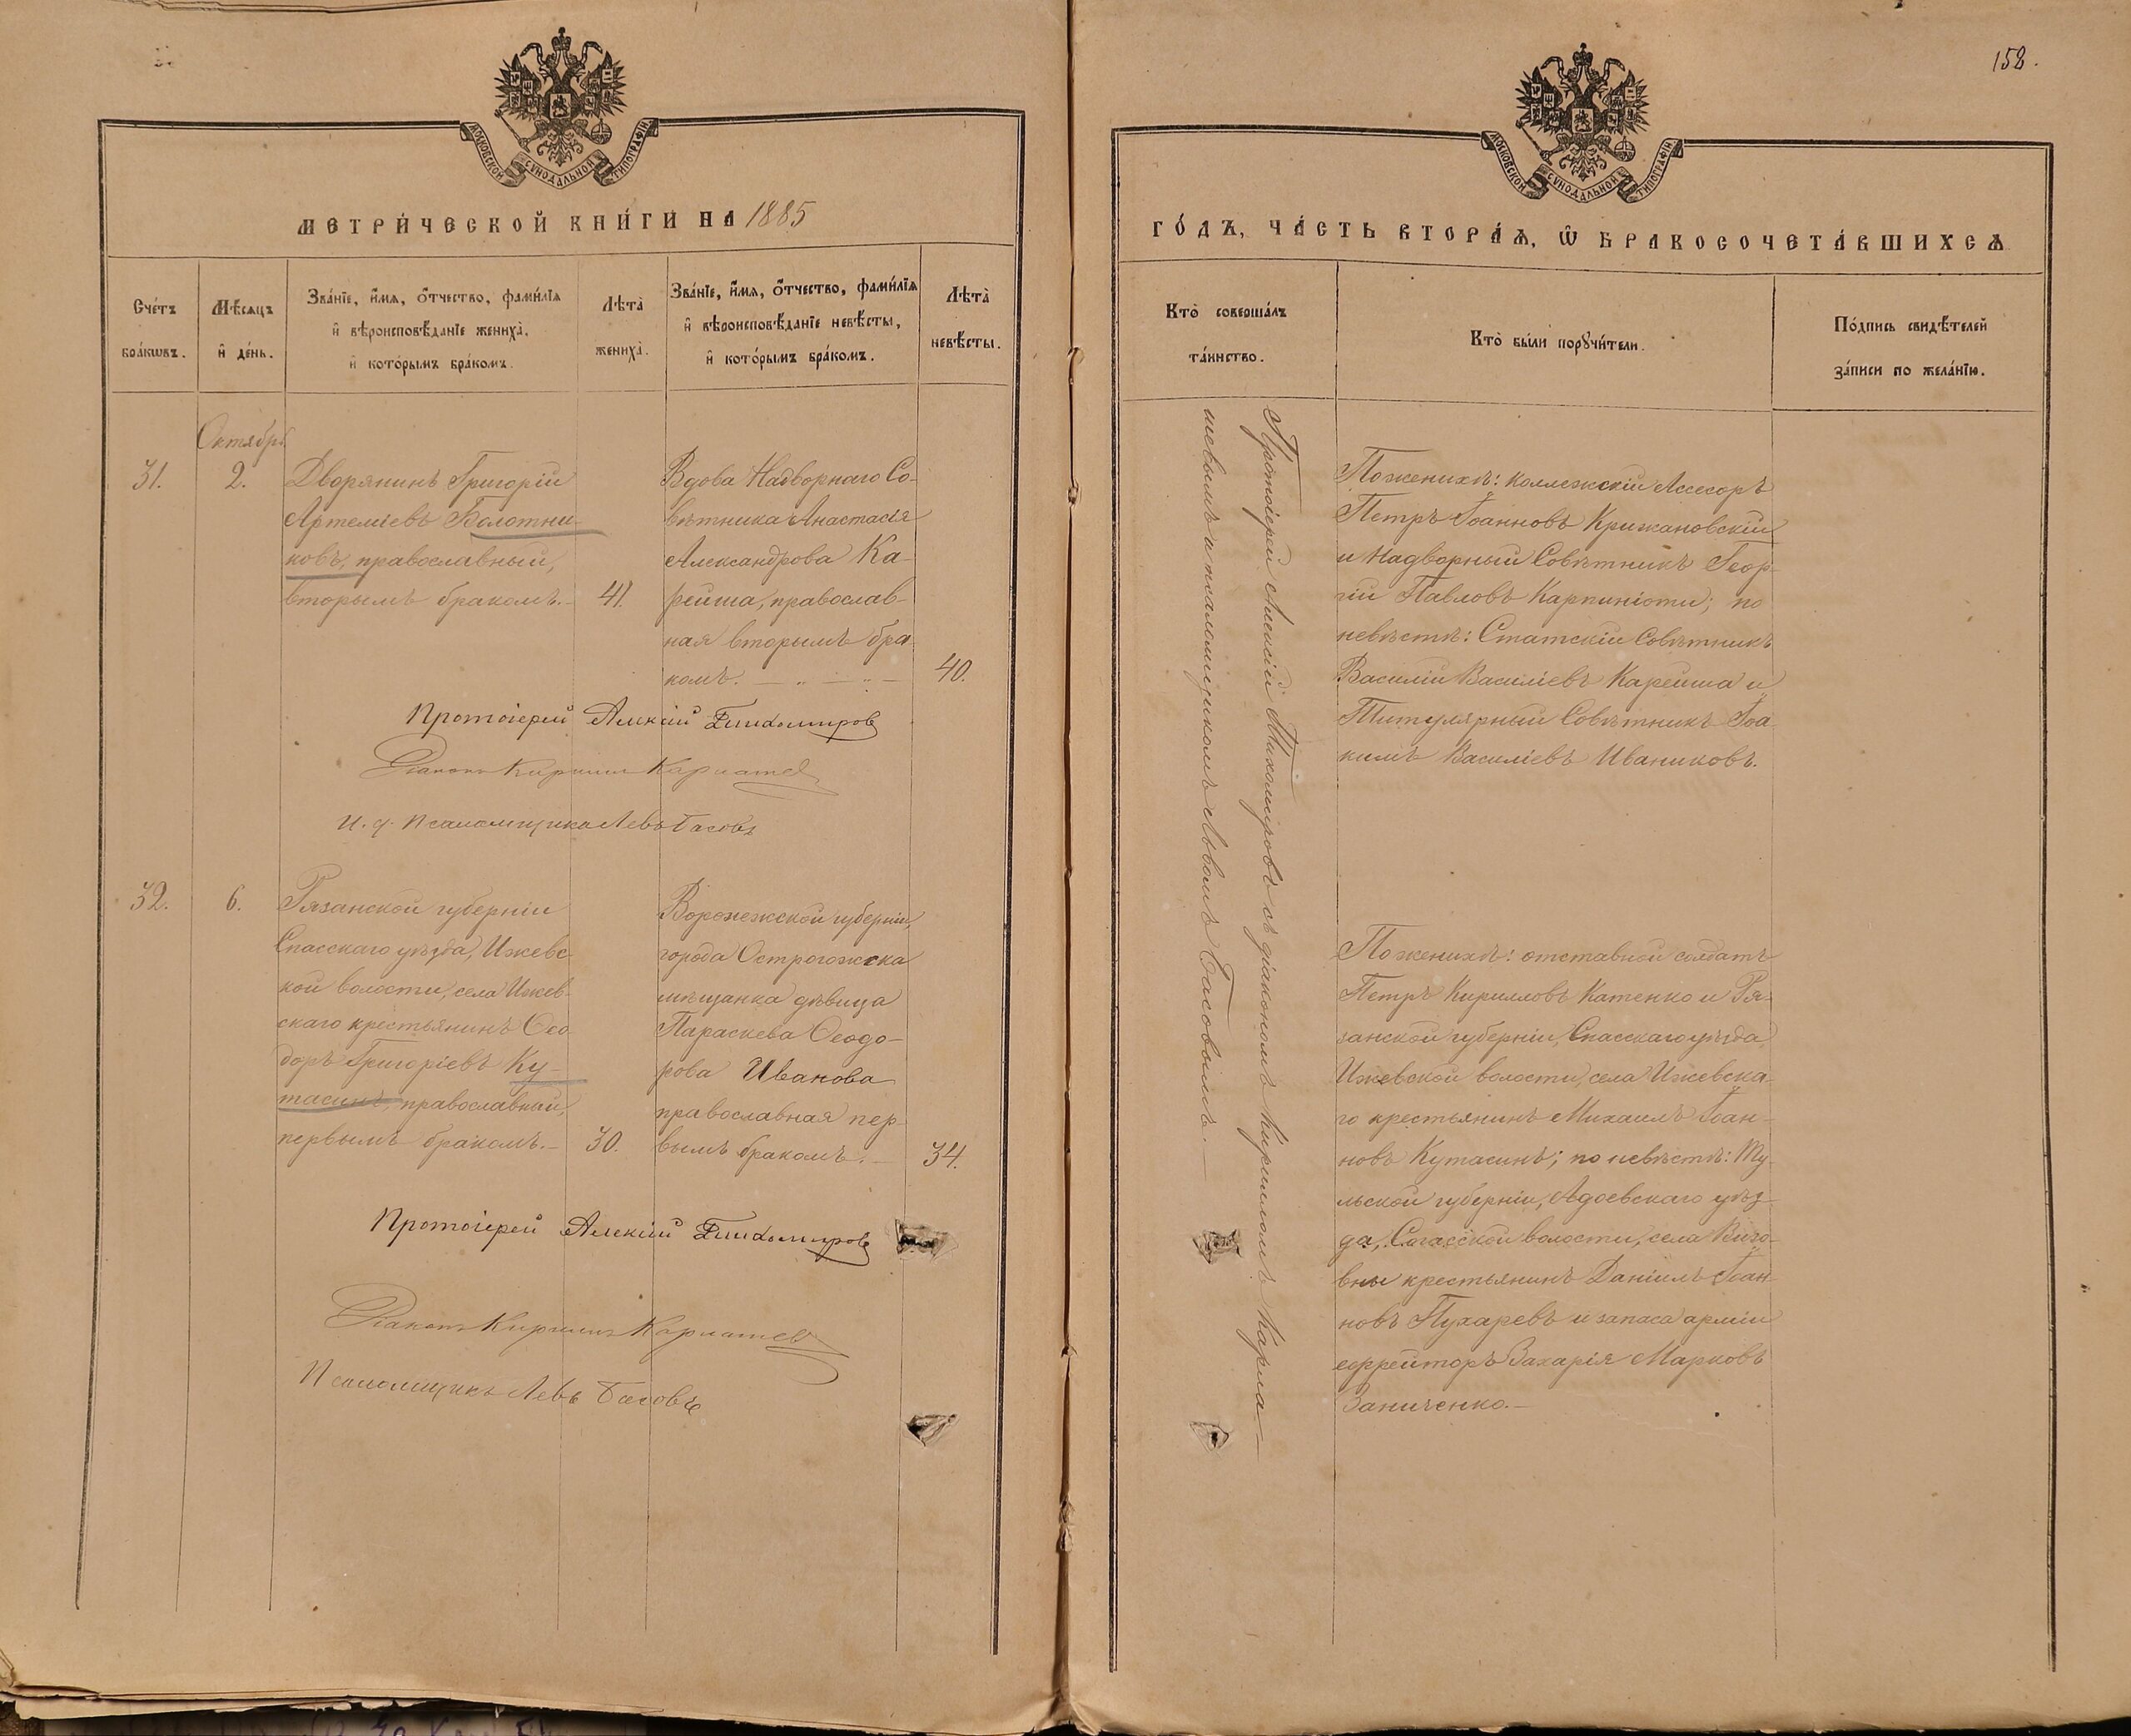 158.
МОСКОВСКОЙ СѴНОДАЛЬНОЙ ТИПОГРАФІИ
МЕТРИ́ЧЕСКОЙ КНИ́ГИ НА 1885
Сче́тъ бра́кωвъ.
Мѣ́сяцъ и҆ де́нь.
Зва́нїе, и҆́мѧ, ѻ҆́тчество, фами́лїѧ
и҆ вѣроисповѣ́данїе жениха̀,
и҆ кото́рымъ бра́комъ.
Лѣта̀
жениха̀.
Зва́нїе, и҆́мѧ, ѻ҆́тчество, фами́лїѧ
и҆ вѣроисповѣ́данїе невѣ́сты,
и҆ кото́рымъ бра́комъ.
Лѣта̀
невѣ́сты.
Октябрь
31.
2.
Дворянинъ Григорій
Артеміевъ Болотни-
ковъ, православный,
вторымъ бракомъ.-
41.
Вдова Надворнаго Со-
вѣтника Анастасія
Александрова Ка-
рейша, православ-
ная вторымъ бра-
комъ.
40.
Протоіерей Алексій Тихомировъ
Діаконъ Кириллъ Карпашевъ
И. д. Псаломщика Левъ Басовъ
32.
6.
Рязанской губерніи
Спасскаго уѣзда, Ижевс-
кой волости, села Ижев-
скаго крестьянинъ Ѳео-
доръ Григоріевъ Ку-
тасинъ, православный,
первымъ бракомъ.-
30.
Воронежской губерніи,
города Острогожска
мѣщанка дѣвица
Параскева Ѳеодо-
рова Иванова
православная пер-
вымъ бракомъ.-
34.
Протоіерей Алексій Тихомировъ
Діаконъ Кириллъ Карпашевъ
Псаломщикъ Левъ Басовъ
МОСКОВСКОЙ СѴНОДАЛЬНОЙ ТИПОГРАФІИ
ГО́ДЪ, ЧА́СТЬ ВТОРА́Ѧ, Ѡ҆ БРАКОСОЧЕТА́ВШИХСѦ
Кто̀ соверша́лъ
та́инство.
Кто̀ бы́ли порꙋчи́тели.
По́дпись свидѣ́телей
за́писи по жела́нїю.
Протоіерей Алексій Тихомировъ съ діакономъ Кирилломъ Карпа-
шевымъ и псаломщикомъ Львомъ Басовымъ.-
По женихѣ: коллежскій Ассесоръ
Петръ Іоанновъ Крижановскій
и Надворный Совѣтникъ Геор-
гій Павловъ Карпиніоти; по
невѣстѣ: Статскій Совѣтникъ
Василій Василіевъ Карейша и
Титулярный Совѣтникъ Іоа-
кимъ Василіевъ Иваниковъ.
По женихѣ: отставной солдатъ
Петръ Кирилловъ Катенко и Ря-
занской губерніи, Спасскаго уѣзда,
Ижевской волости, села Ижевска-
го крестьянинъ Михаилъ Іоан-
новъ Кутасинъ; по невѣстѣ: Ту-
льской губерніи, Адоевскаго уѣз-
да, волости, села
крестьянинъ Даніилъ Іоан-
новъ Пухаревъ и запаса арміи
ефрейторъ Захарія Марковъ
Заниченко.-